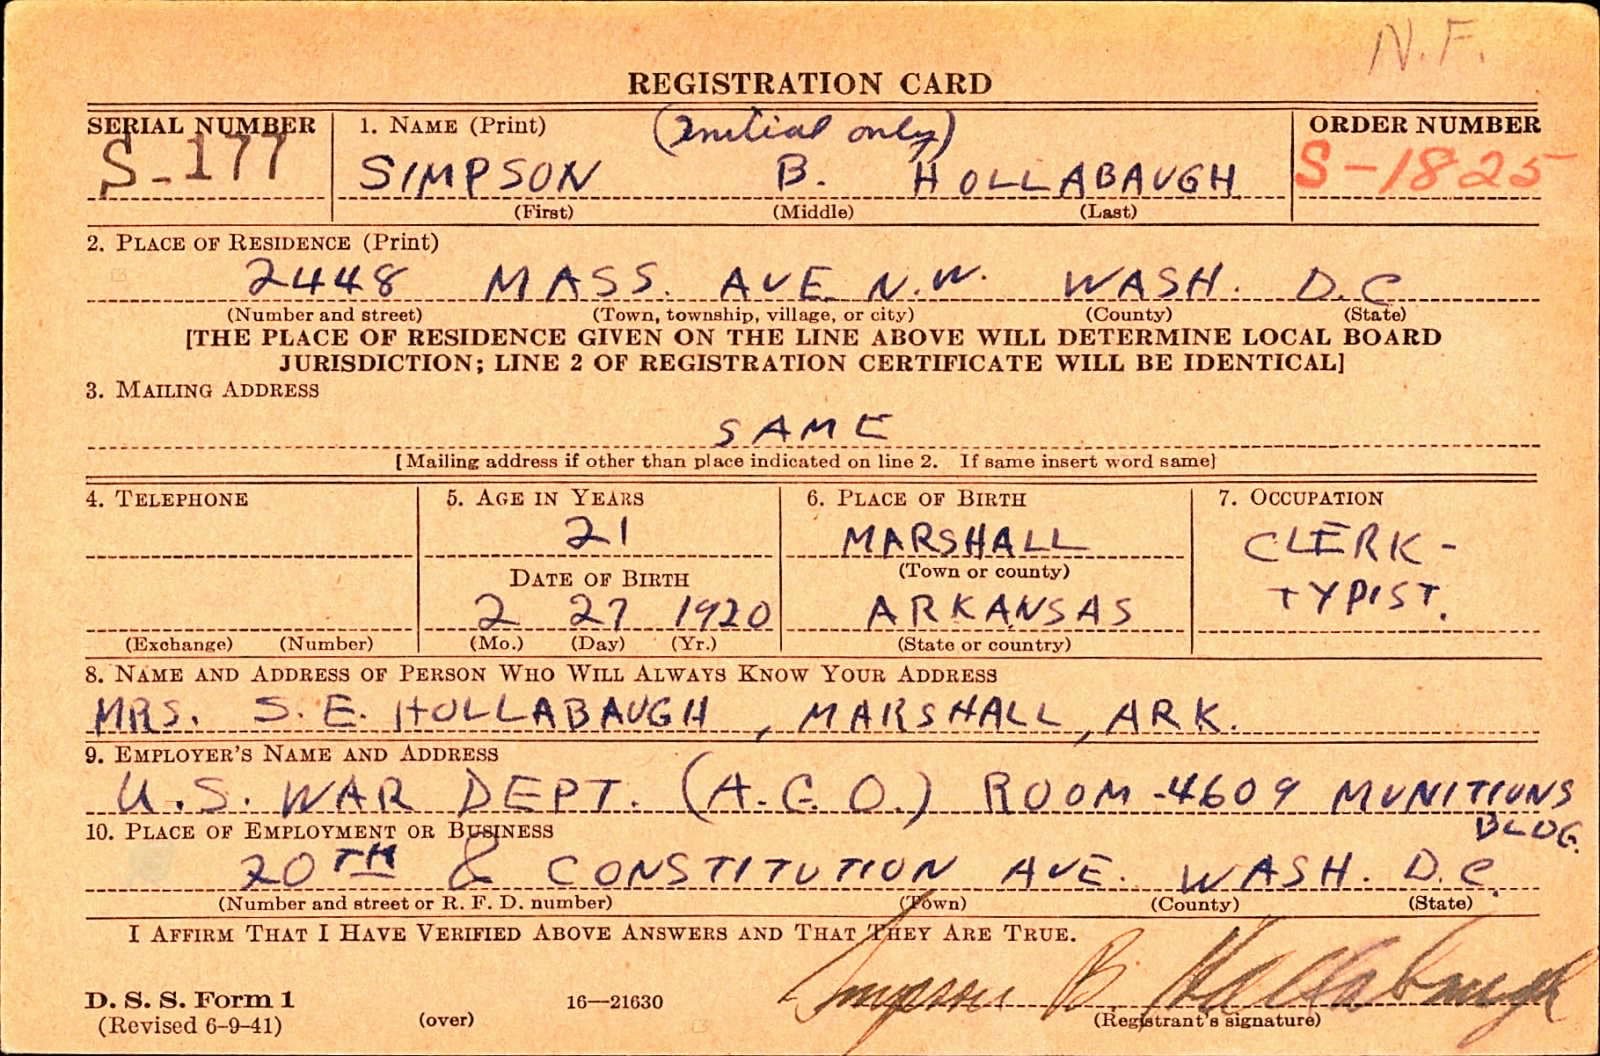 N.F.
REGISTRATION CARD
SERIAL NUMBER 1. NAME (Print) (Initial only) ORDER NUMBER
S-177 SIMPSON B. HOLLABAUGH S-1825
(First) (Middle) (Last)
2. PLACE OF RESIDENCE (Print)
2448 MASS. AVE N.W. WASH. D.C
(Number and street) (Town, township, village, or city) (County) (State)
[THE PLACE OF RESIDENCE GIVEN ON THE LINE ABOVE WILL DETERMINE LOCAL BOARD
JURISDICTION; LINE 2 OF REGISTRATION CERTIFICATE WILL BE IDENTICAL]
3. MAILING ADDRESS
SAME
[Mailing address if other than place indicated on line 2. If same insert word same]
4. TELEPHONE 5. AGE IN YEARS 6. PLACE OF BIRTH 7. OCCUPATION
21 MARSHALL CLERK-
DATE OF BIRTH (Town or county)
2 27 1920 ARKANSAS TYPIST.
(Exchange) (Number) (Mo.) (Day) (Yr.) (State or country)
8. NAME AND ADDRESS OF PERSON WHO WILL ALWAYS KNOW YOUR ADDRESS
MRS. S. E. HOLLABAUGH, MARSHALL, ARK.
9. EMPLOYER'S NAME AND ADDRESS
U.S. WAR DEPT. (A.G.O.) ROOM-4609 MUNITIONS
BLDG.
10. PLACE OF EMPLOYMENT OR BUSINESS
20TH & CONSTITUTION AVE. WASH. D.C.
(Number and street or R. F. D. number) (Town) (County) (State)
I AFFIRM THAT I HAVE VERIFIED ABOVE ANSWERS AND THAT THEY ARE TRUE.
Simpson B. Hollabaugh
D. S. S. Form 1 16—21630
(Revised 6-9-41) (over) (Registrant's signature)